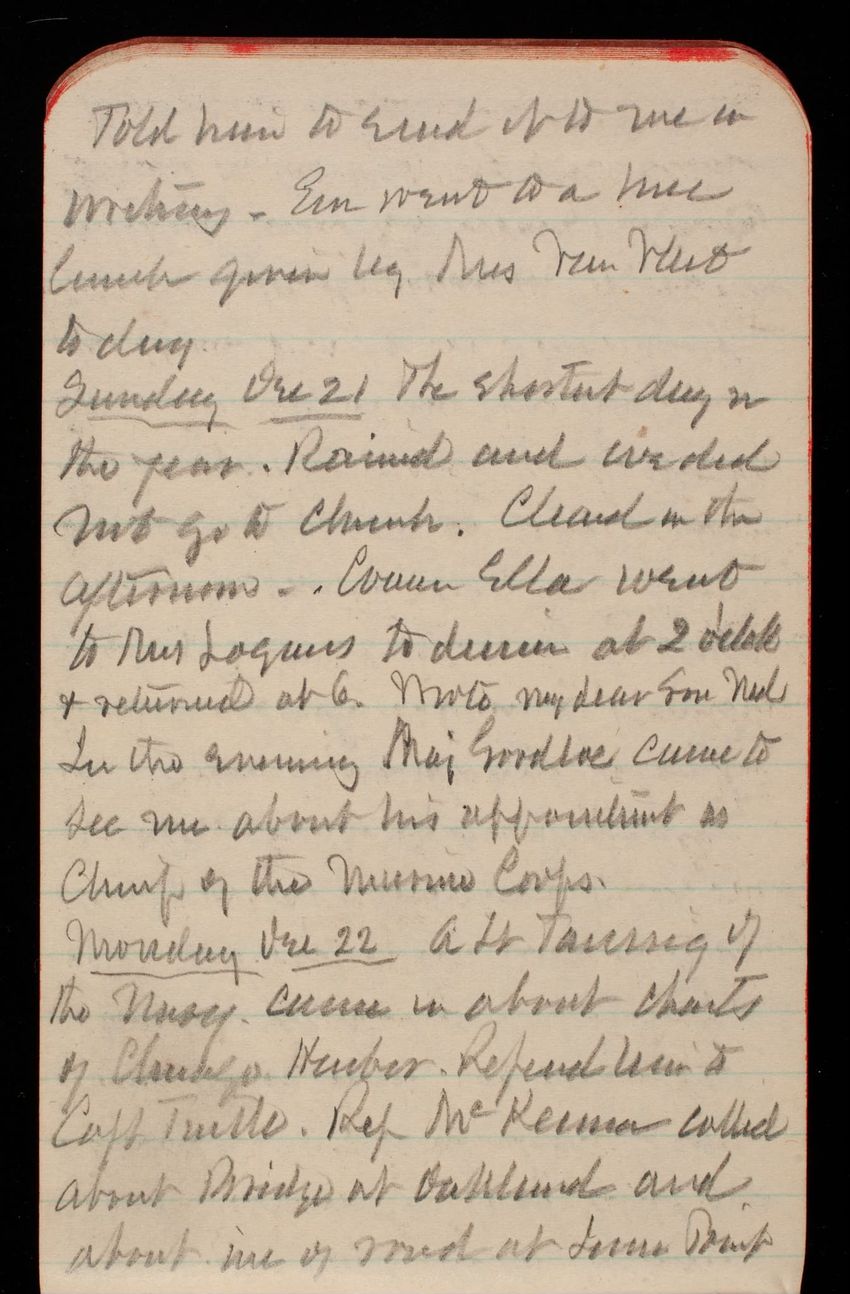 Told him to send it to me in
writing - Em went to a nice
lunch given by Mrs Van Vliet
to day
Sunday Dec 21 The shortest day in
the year. Rained and we did
not go to Church. Cleard in the
afternoon - . Cousin Ella went
to Mrs Logans to dinner at 2 oclock
& returned at 6. Wrote my dear Son Ned
In the evening Maj Goodloe came to
see me about his appointment as
Chief of the Marine Corps.
Monday Dec 22 A Lt Taussig of
the Navy. came in about charts
of Chicago Harbor. Referd him to
Capt Tuttle. Rep McKenna called
about Bridge at Oakland and
about use of road at Lime Point